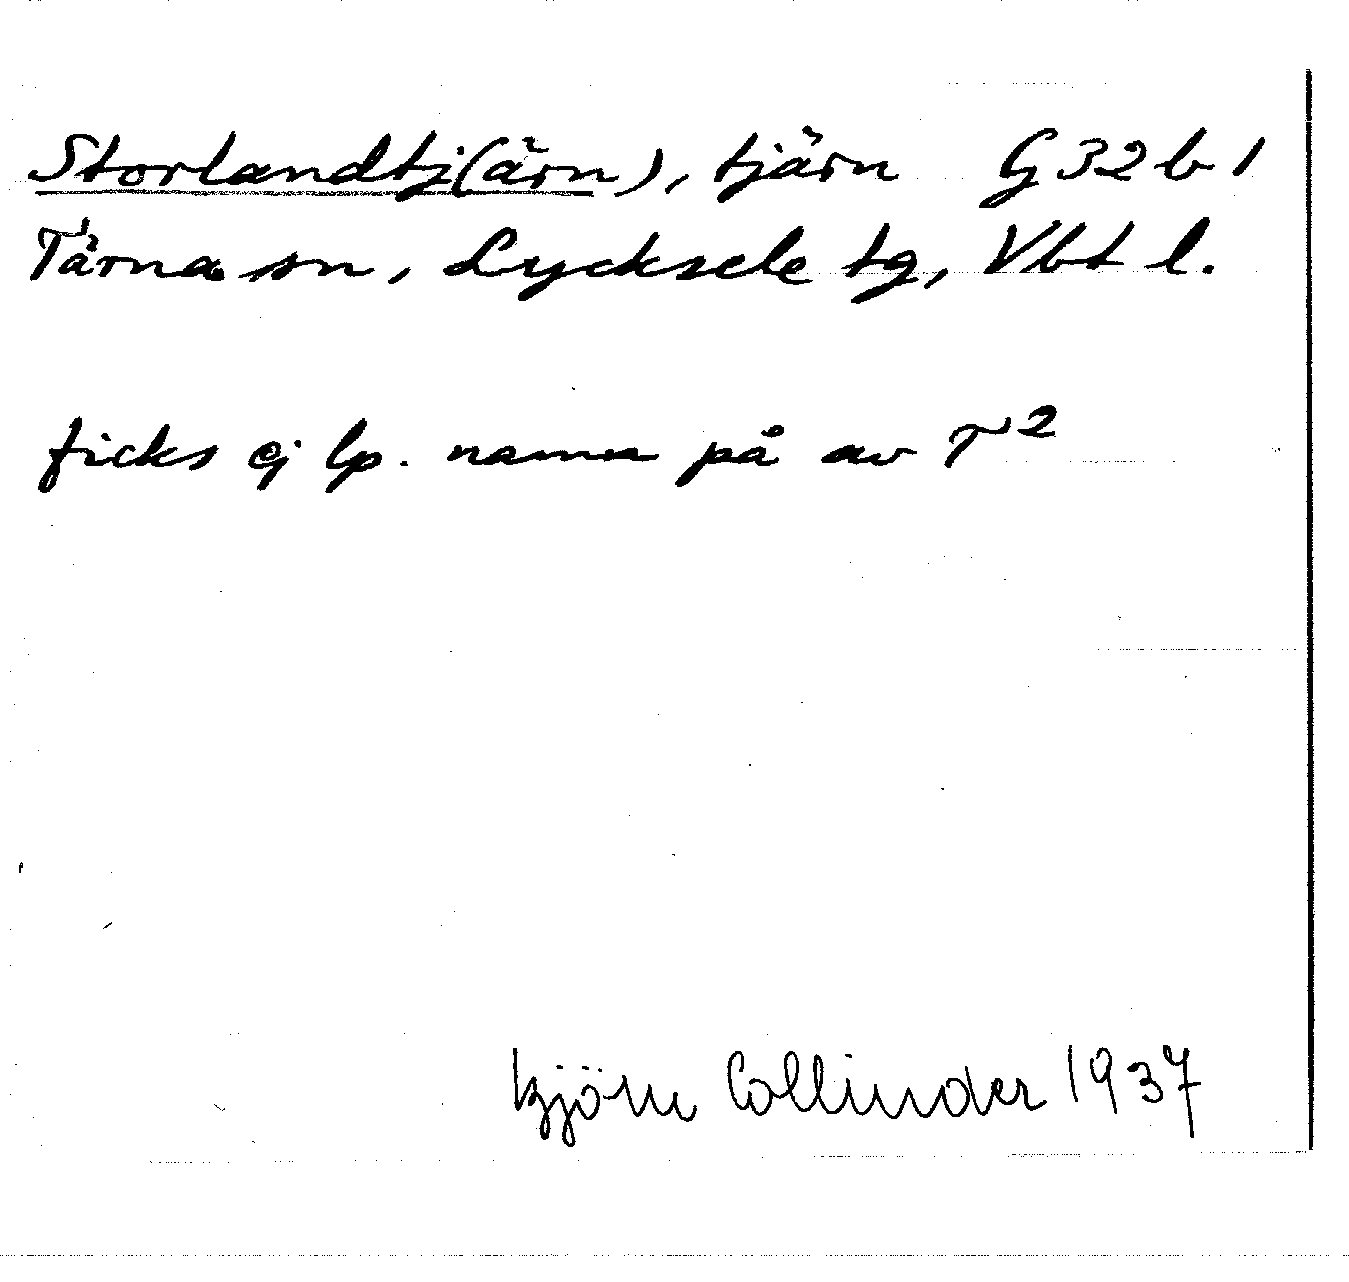 Storlandtj(ärn), tjärn G 32 b 1
Tärna sn, Lycksele tg, Vbt l.
ficks ej lp. namn på av T2
Björn Collinder 1937